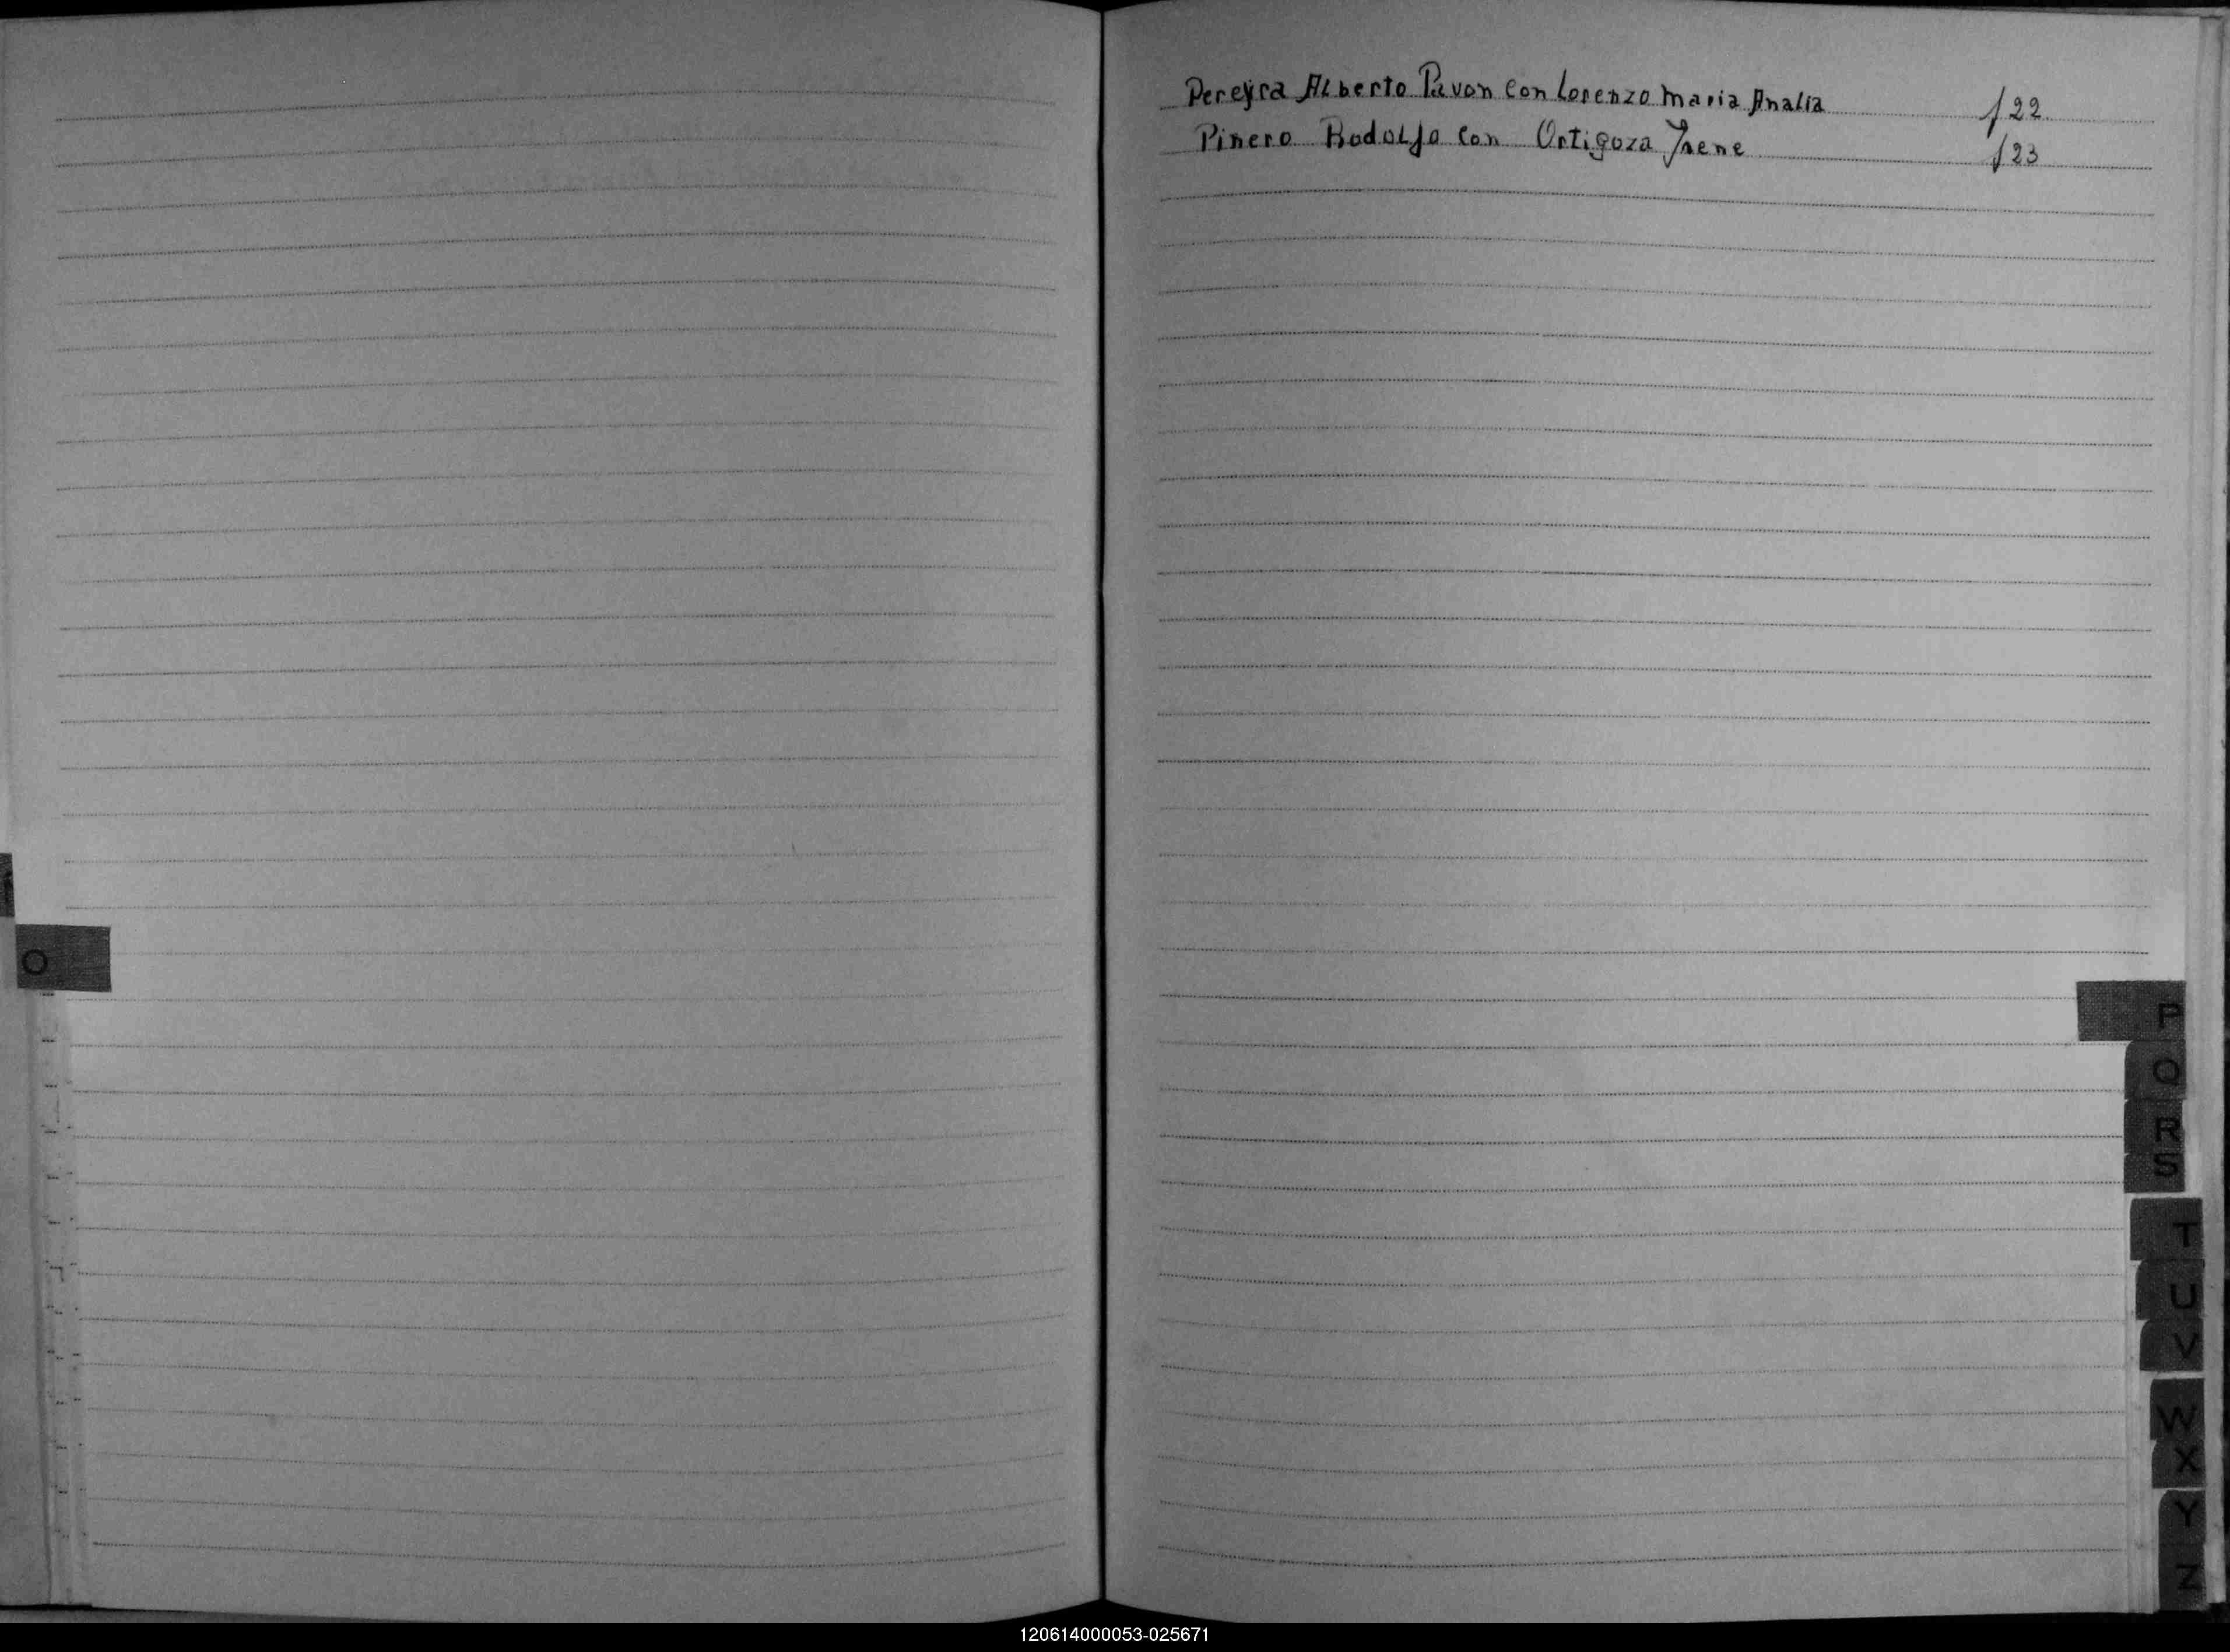 Pereyra Alberto Pavon Con Lorenzo Maria Analia f 22
Pinero Rodolfo Con Ortigoza Irene f 23
O
P
Q
R
S
T
U
V
W
X
Y
Z
120614000053-025671